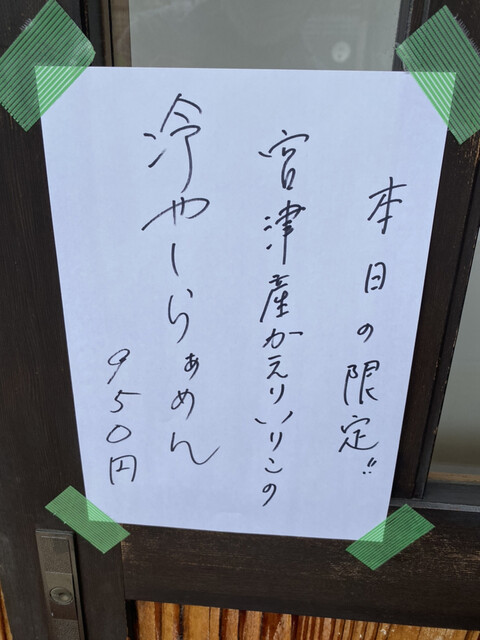 本日の限定!!
宮津産かえりいりこの
冷やしらぁめん
950円